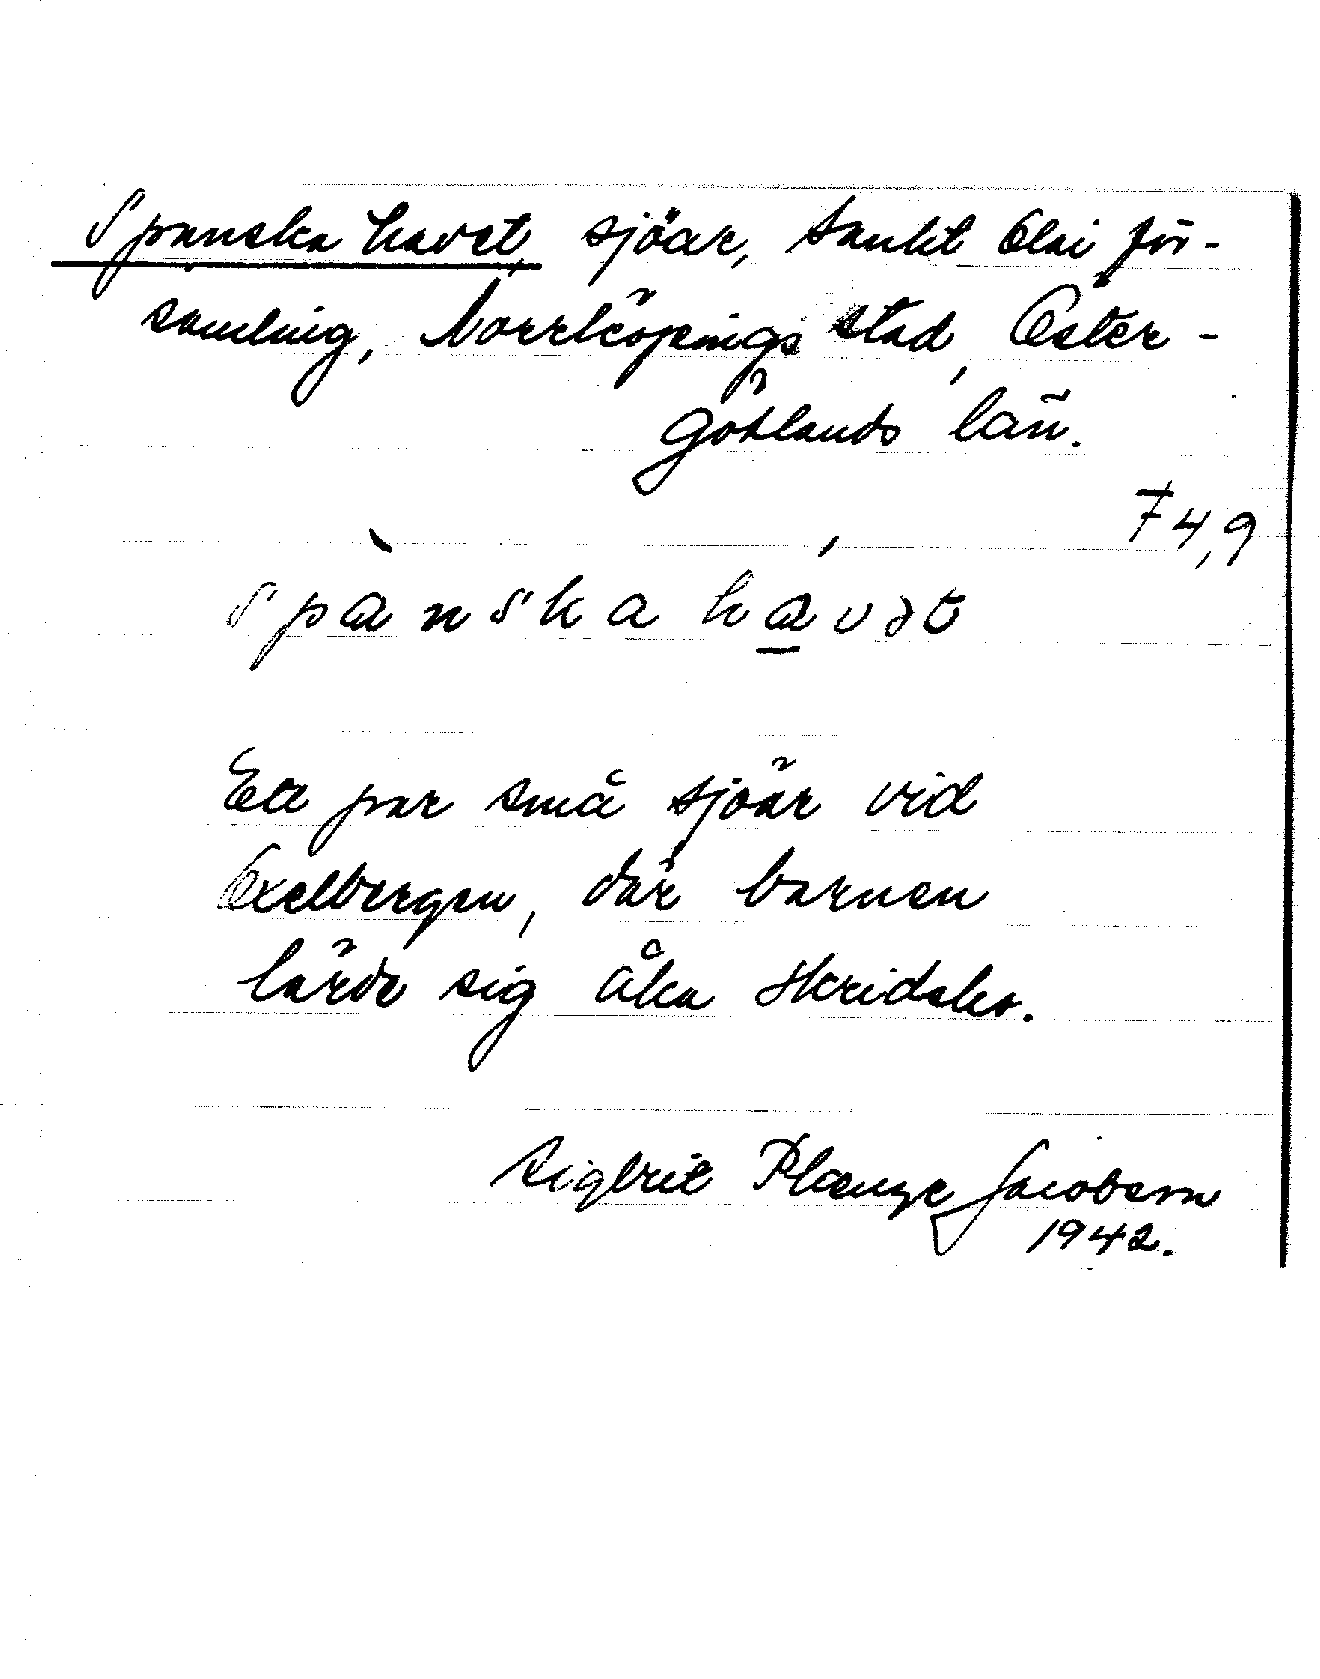 Spanska havet, sjöar, Sankt Olai för-
samling, Norrköpings stad, Öster-
götlands län.
74,9
spànska há̱vət
Ett par små sjöar vid
Oxelbergen, där barnen
lärde sig åka skridsko.
Sigbrit Plænge Jacobson
1942.